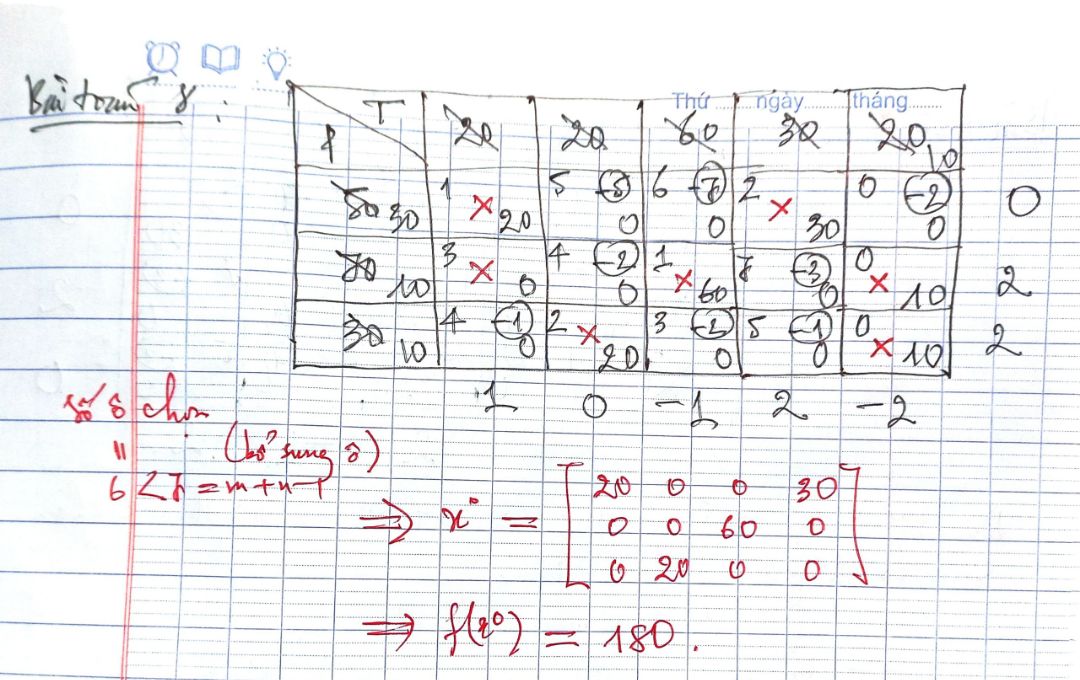 Bài toán 8 :
Thứ ngày tháng
T 20 20 60 30 20 10
P
50 30 1 × 20 5 -5 0 6 -7 0 2 × 30 0 -2 0 0
70 10 3 × 0 4 -2 0 1 × 60 7 -3 0 0 × 10 2
30 10 4 -1 0 2 × 20 3 -2 0 5 -1 0 0 × 10 2
1 0 -1 2 -2
số ô chọn
" (bổ sung ô)
6 < 7 = m+n-1
⇒ x⁰ = [ 20 0 0 30
0 0 60 0
0 20 0 0 ]
⇒ f(x⁰) = 180.